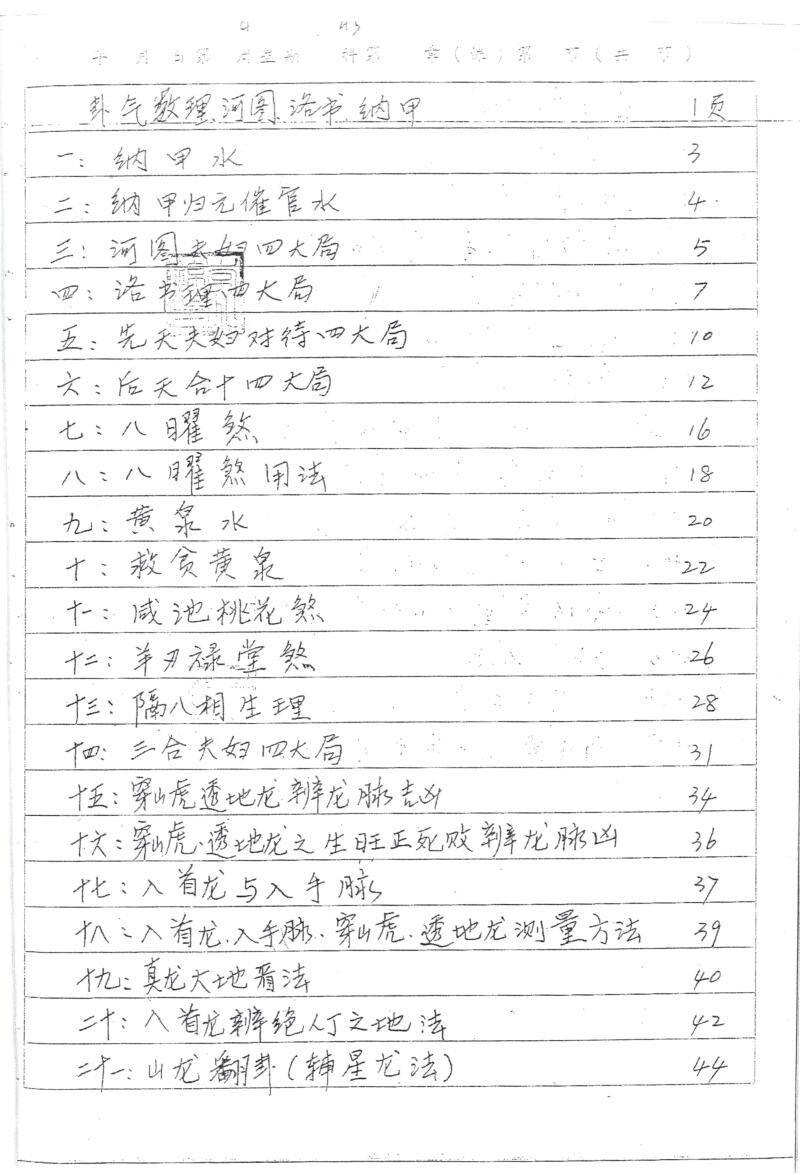 年 月 日 第 周 星期 科 第 章(课)第 节(共 节)
卦气数理、河图、洛书、纳甲 1页
一：纳甲水 3
二：纳甲归元催官水 4
三：河图夫妇四大局 5
四：洛书理四大局 7
五：先天夫妇对待四大局 10
六：后天合十四大局 12
七：八曜煞 16
八：八曜煞用法 18
九：黄泉水 20
十：救贫黄泉 22
十一：咸池桃花煞 24
十二：羊刃禄堂煞 26
十三：隔八相生理 28
十四：三合夫妇四大局 31
十五：穿山虎透地龙辨龙脉吉凶 34
十六：穿山虎、透地龙之生旺正死败辨龙脉凶 36
十七：入首龙与入手脉 37
十八：入首龙、入手脉、穿山虎、透地龙测量方法 39
十九：真龙大地看法 40
二十：入首龙辨绝人丁之地法 42
二十一：山龙翻卦(辅星龙法) 44